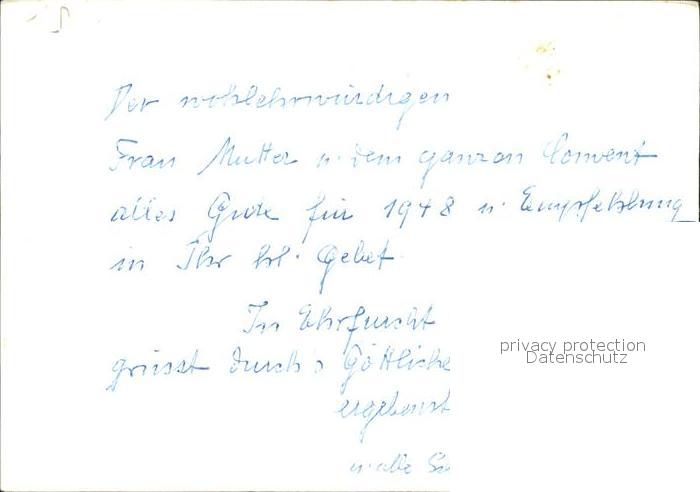 Der wohlehrwürdigen
Frau Mutter u. dem ganzen Convent
alles Gute für 1948 u. Empfehlung
in Ihr hl. Gebet.
In Ehrfurcht
privacy protection
Datenschutz
grüsst durch's Göttliche
ergebenst
u. alle